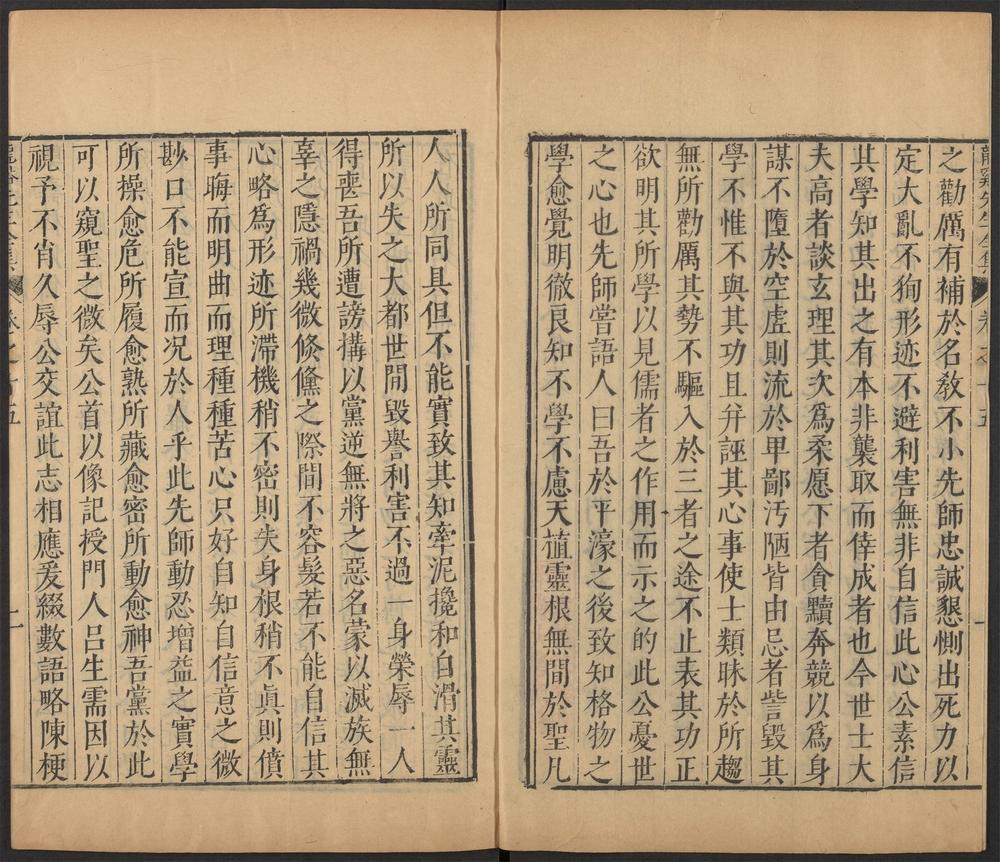 龍谿先生全集 卷之十五
之勸厲有補於名教不小先師忠誠懇惻出死力以
定大亂不狥形迹不避利害無非自信此心公素信
其學知其出之有本非襲取而倖成者也今世士大
夫高者談玄理其次爲柔愿下者貪黷奔競以爲身
謀不墮於空虛則流於甲鄙汚陋皆由忌者訾毀其
學不惟不與其功且幷誣其心事使士類昧於所趨
無所勸厲其勢不驅入於三者之途不止表其功正
欲明其所學以見儒者之作用而示之的此公憂世
之心也先師嘗語人曰吾於平濠之後致知格物之
學愈覺明徹良知不學不慮天植靈根無間於聖凡
人人所同具但不能實致其知牽泥攙和自滑其靈
所以失之大都世間毀譽利害不過一身榮辱一人
得喪吾所遭謗搆以黨逆無將之惡名蒙以滅族無
辜之隱禍幾微倏儵之際間不容髮若不能自信其
心略爲形迹所滯機稍不密則失身根稍不眞則僨
事晦而明曲而理種種苦心只好自知自信意之微
眇口不能宣而况於人乎此先師動忍增益之實學
所操愈危所履愈熟所藏愈密所動愈神吾黨於此
可以窺聖之微矣公首以像記授門人呂生需因以
視予不肖久辱公交誼此志相應爰綴數語略陳梗